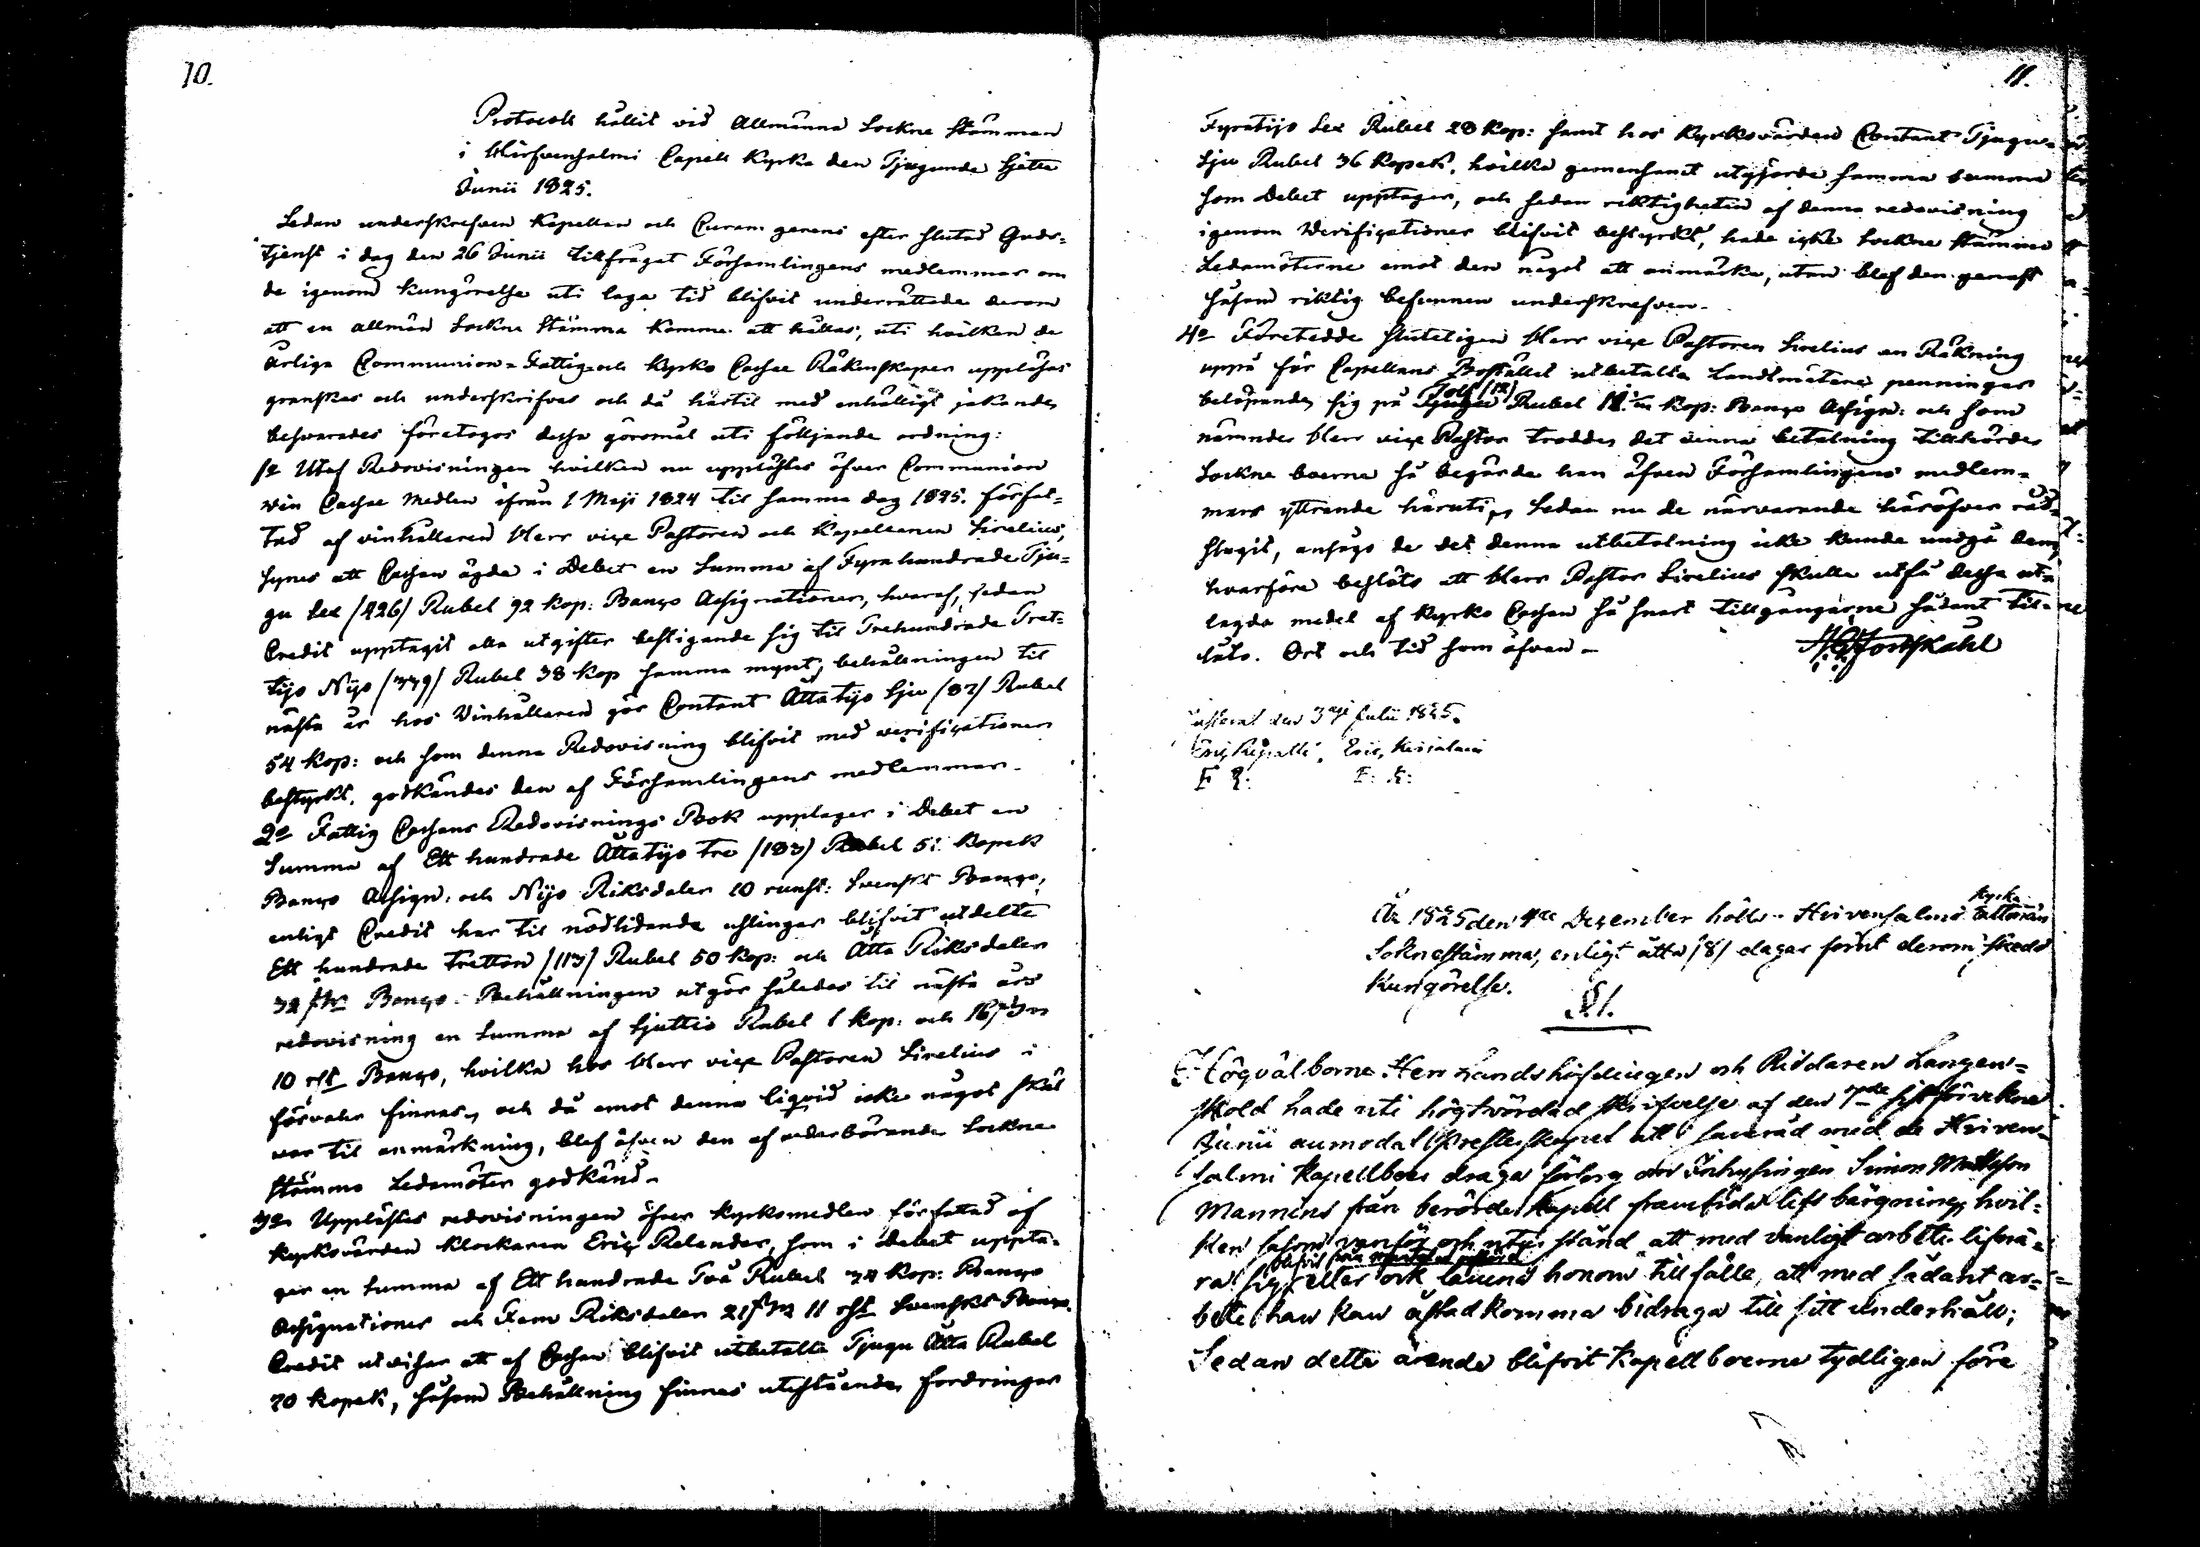 10.
Protocoll hållit vid Allmänna Sockne Stämman
i Hirfvensalmi Capell Kyrka den Tjugunde Sjätte
Junii 1825.
Sedan underskrefven Kapellan och Curam gerens efter slutad Guds-
tjenst i dag den 26 Junii tillfrågat Församlingens medlemmar om
de igenom kungörelse uti laga tid blifvit underrättade derom
att en allmän Sockne Stämma komme att hållas, uti hvilken de
årliga Communion- Fattig- och Kyrko Cassae Räkenskaper uppläsas
granskas och underskrifvas och då härtil med enhälligt jakande
besvarades företogos dessa göromål uti följande ordning:
1o Utaf Redovisningen hvilken nu upplästes öfver Communion
vin Cassae Medlen ifrån 1 Maji 1824 til samma dag 1825. förfat-
tad af vinhållaren Herr vice Pastoren och Kapellanen Sirelius,
synes att Cassan ägde i Debet en Summa af Fyrahundrade Tju-
gu Sex /426/ Rubel 92 kop: Banco Assignationer, hvaraf, sedan
Credit upptagit alla utgifter bestigande sig til Trehundrade Tret-
tijo Nijo /339/ Rubel 38 kop samma mynt, behållningen til
nästa år hos Vinhållaren gör Contant Åttatijo Sju /87/ Rubel
54 kop: och som denna Redovisning blifvit med verificationer
bestyrkt, godkändes den af Församlingens medlemmar.
2o Fattig Cassans Redovisnings Bok upptager i Debet en
Summa af Ett hundrade Åttatijo tre /183/ Rubel 51 kopek
Banco Assign: och Nijo Riksdaler 10 runst: Svenskt Banco,
enligt Credit har til nödlidande uslingar blifvit utdelte
Ett hundrade Tretton /113/ Rubel 50 kop: och Åtta Riksdaler
32 Banco. Behållningen utgör således til nästa års
redovisning en Summa af Sjuttio Rubel 1 kop: och 16
10 rst Banco, hvilka hos Herr vice Pastoren Sirelius i
förvahr finnas, och då emot denna liqvid icke något skäl
var til anmärkning, blef äfven den af vederbörande Sockne
Stämmo Ledamöter godkänd.
3o Upplästes redovisningen öfver Kyrkomedlen författad af
Kyrkovärden klockaren Eric Relander, som i Debet uppta-
ger en Summa af Ett hundrade Två Rubel 34 kop: Banco
Assignationer och Fem Riksdaler 21 11 rst Svenskt Banco.
Credit utvisar att af Cassan blifvit utbetalte Tjugu Åtta Rubel
70 kopek, såsom Behållning finnes utestående fordringar
11.
Fyratijo Sex Rubel 28 kop: samt hos Kyrkovärden Contant Tjugu-
Sju Rubel 36 kopek, hvilka gemensamt utgjorde samma summa
som Debet upptager, och sedan riktigheten af denna redovisning
igenom Verificationer blifvit bestyrkt, hade icke Sockne Stämmo
Ledamöterne emot den något att anmärka, utan blef den genast
såsom riktig befunnen underskrefven.
4o Företedde sluteligen Herr vice Pastoren Sirelius en Räkning
uppå för Capellans Bostället utbetalte Landtmätare penningar
belöpande sig på Tolf /12/ Rubel kop: Banco Assign: och som
nämnde Herr vice Pastor trodde det denna betalning tillhörde
Sockne boerne så begärde han äfven Församlingens medlem-
mars yttrande häruti, sedan nu de närvarande häröfver råd-
slagit, ansågo de det denna utbetalning icke kunde undgå dem,
hvarföre beslöts att Herr Pastor Sirelius skulle utfå dessa ut-
lagda medel af Kyrko Cassan så snart tillgångarne sådant til-
låto. Ort och tid som äfvan.
Forsskåhl
den 3dje Julii 1825.
Eric Eric
E. R. E: K:
År 1825 den 4de December hölls Hirvensalmi kyrka
Soknestämma, enligt åtta /8/ dagar förut derom skedd
Kungörelse.
§.1.
Högvälborne Herr Landshöfdingen och Riddaren Langen-
skold hade uti högtvördad skrifvelse af den 7de sistförvekne
Junii anmodat Presterskapet att samråd med de Hirven-
salmi Kapellboer draga försorg om Inhysingen Simon Mattsson
Manninens från berörde Kapell framtida lifs bärgning, hvil-
ken såsom vanför och utur stånd att med vanligt arbete lifnä-
ra sig eller ock lämna honom tillfälle, att med sådant ar-
bete han kan åstadkomma bidraga till sitt underhåll;
Sedan detta ärende blifvit Kapellboerne tydligen före